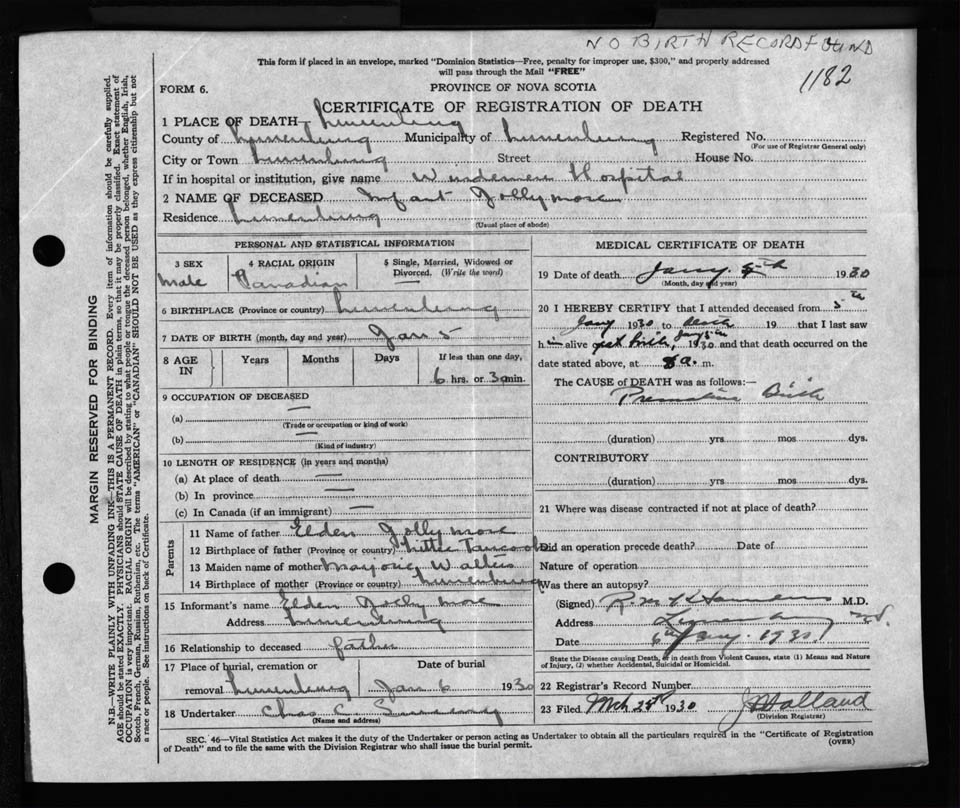 NO BIRTH RECORD FOUND
This form if placed in an envelope, marked "Dominion Statistics—Free, penalty for improper use, $300," and properly addressed
will pass through the Mail "FREE"
1182
FORM 6.
PROVINCE OF NOVA SCOTIA
CERTIFICATE OF REGISTRATION OF DEATH
1 PLACE OF DEATH— Lunenburg
County of Lunenburg Municipality of Lunenburg Registered No.
(For use of Registrar General only)
City or Town Lunenburg Street House No.
If in hospital or institution, give name Hospital
2 NAME OF DECEASED Infant Jollymore
Residence Lunenburg
(Usual place of abode)
PERSONAL AND STATISTICAL INFORMATION
3 SEX
Male
4 RACIAL ORIGIN
Canadian
5 Single, Married, Widowed or
Divorced. (Write the word)
—
6 BIRTHPLACE (Province or country) Lunenburg
7 DATE OF BIRTH (month, day and year) Jan 5
8 AGE
IN
Years
Months
Days
If less than one day,
6 hrs. or 30 min.
9 OCCUPATION OF DECEASED
(a) —
(Trade or occupation or kind of work)
(b) —
(Kind of industry)
10 LENGTH OF RESIDENCE (in years and months)
(a) At place of death —
(b) In province —
(c) In Canada (if an immigrant) —
Parents
11 Name of father Elden Jollymore
12 Birthplace of father (Province or country) Little Tancook
13 Maiden name of mother Walters
14 Birthplace of mother (Province or country) Lunenburg
15 Informant's name Elden Jollymore
Address Lunenburg
16 Relationship to deceased father
17 Place of burial, cremation or
removal Lunenburg
Date of burial
Jan 6 1930
18 Undertaker Chas C.
(Name and address)
MEDICAL CERTIFICATE OF DEATH
19 Date of death Jany. 1930
(Month, day and year)
20 I HEREBY CERTIFY that I attended deceased from 5th
Jany 1930 to death 19 that I last saw
h im alive at birth, Jany 5th 1930 and that death occurred on the
date stated above, at a. m.
The CAUSE of DEATH was as follows:—
Premature Birth
(duration) yrs mos dys.
CONTRIBUTORY
(duration) yrs mos dys.
21 Where was disease contracted if not at place of death?
Did an operation precede death? Date of
Nature of operation
Was there an autopsy?
(Signed) M.D.
Address Lunenburg NS.
Date 6th Jany. 1930
State the Disease causing Death, or in death from Violent Causes, state (1) Means and Nature
of Injury, (2) whether Accidental, Suicidal or Homicidal.
22 Registrar's Record Number
23 Filed Mch 25th 1930 Holland
(Division Registrar)
SEC. 46—Vital Statistics Act makes it the duty of the Undertaker or person acting as Undertaker to obtain all the particulars required in the "Certificate of Registration
of Death" and to file the same with the Division Registrar who shall issue the burial permit.
(OVER)
MARGIN RESERVED FOR BINDING
N.B.—WRITE PLAINLY WITH UNFADING INK—THIS IS A PERMANENT RECORD. Every item of information should be carefully supplied.
AGE should be stated EXACTLY. PHYSICIANS should STATE CAUSE OF DEATH in plain terms, so that it may be properly classified. Exact statement of
OCCUPATION is very important. RACIAL ORIGIN will be described by stating to what people or tongue the deceased person belonged, whether English, Irish,
Scotch, French, German, Russian, Ruthenian, etc. The terms "AMERICAN" or "CANADIAN" SHOULD NOT BE USED as they express citizenship but not
a race or people. See instructions on back of Certificate.